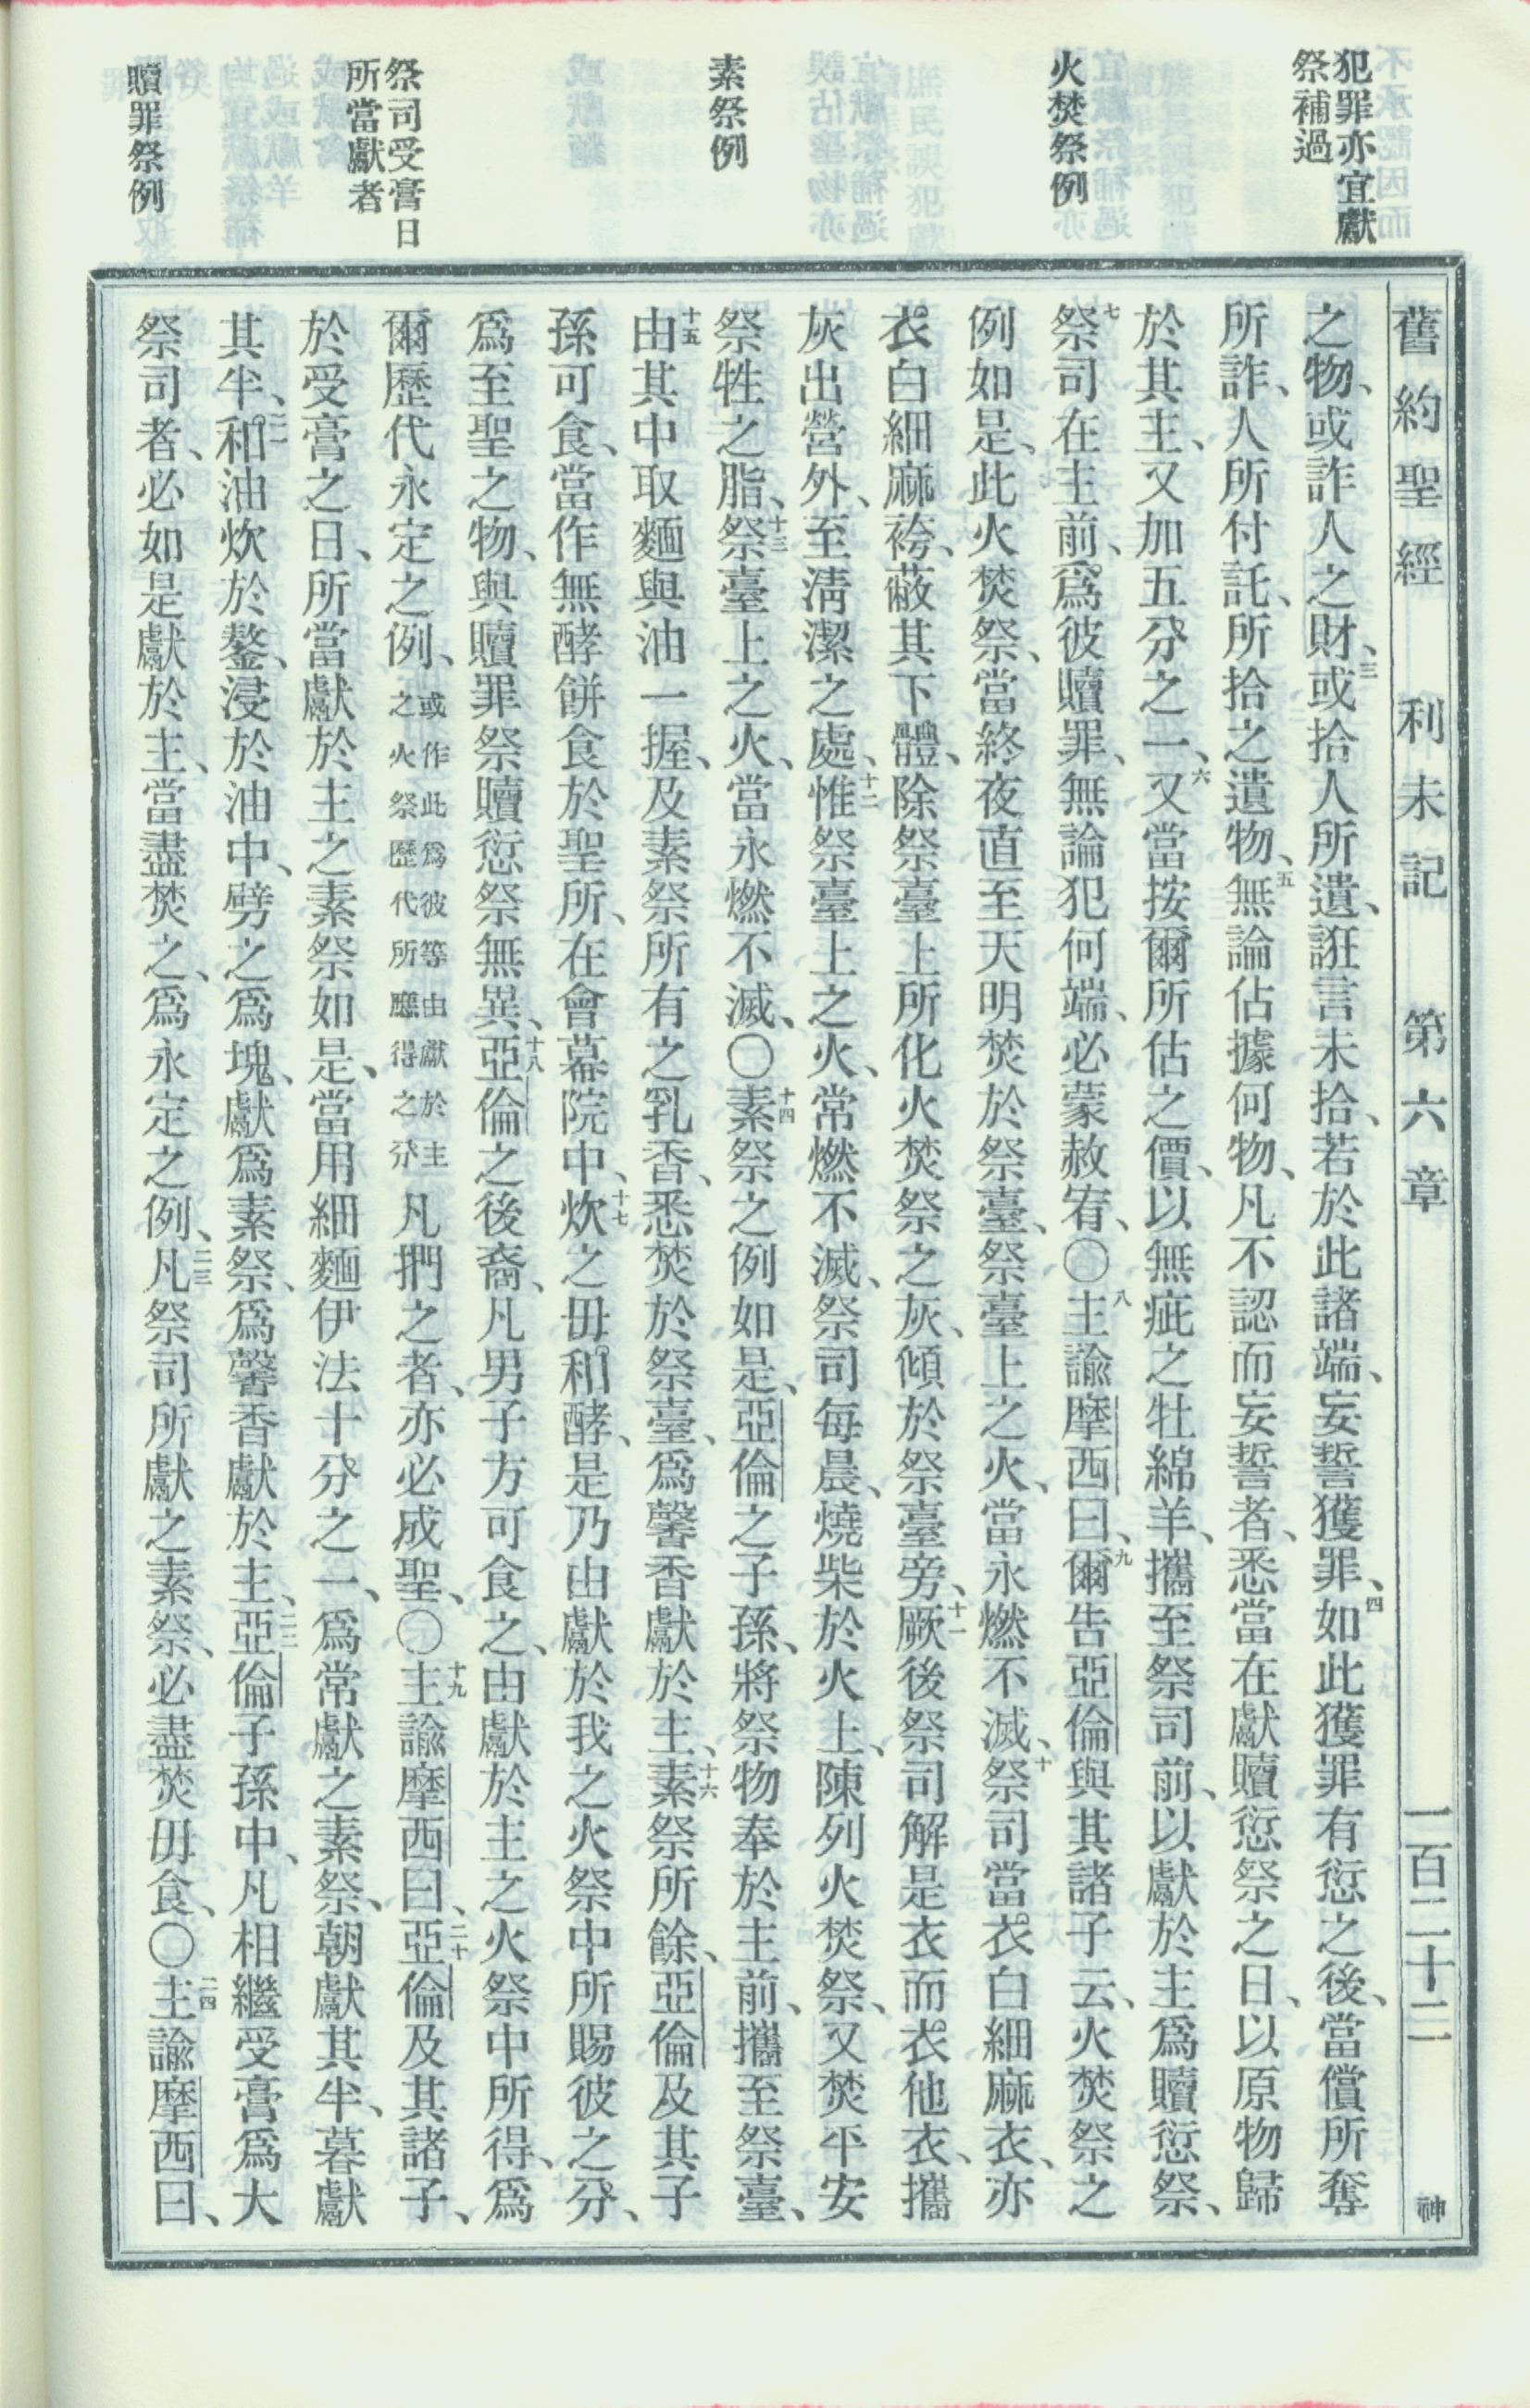 犯罪亦宜獻
祭補過
火焚祭例
素祭例
祭司受膏日
所當獻者
贖罪祭例
舊約聖經 利未記 第六章 一百二十二 神
之物、或詐人之財、三或拾人所遺、誑言未拾、若於此諸端、妄誓獲罪、四如此獲罪有愆之後、當償所奪
所詐、人所付託、所拾之遺物、五無論佔據何物、凡不認而妄誓者、悉當在獻贖愆祭之日、以原物歸
於其主、又加五分之一、六又當按爾所估之價、以無疵之牡綿羊、攜至祭司前、以獻於主爲贖愆祭、
七祭司在主前、爲彼贖罪、無論犯何端、必蒙赦宥、〇八主諭摩西曰、九爾告亞倫與其諸子云、火焚祭之
例如是、此火焚祭、當終夜直至天明焚於祭臺、祭臺上之火、當永燃不滅、十祭司當衣白細麻衣、亦
衣白細麻袴、蔽其下體、除祭臺上所化火焚祭之灰、傾於祭臺旁、十一厥後祭司解是衣而衣他衣、攜
灰出營外、至淸潔之處、十二惟祭臺上之火、常燃不滅、祭司每晨、燒柴於火上、陳列火焚祭、又焚平安
祭牲之脂、十三祭臺上之火、當永燃不滅、〇十四素祭之例如是、亞倫之子孫、將祭物奉於主前、攜至祭臺、
十五由其中取麵與油一握、及素祭所有之乳香、悉焚於祭臺、爲馨香獻於主、十六素祭所餘、亞倫及其子
孫可食、當作無酵餅食於聖所、在會幕院中、十七炊之毋和酵、是乃由獻於我之火祭中所賜彼之分、
爲至聖之物、與贖罪祭贖愆祭無異、十八亞倫之後裔、凡男子方可食之、由獻於主之火祭中所得、爲
爾歷代永定之例、或作此爲彼等由獻於主之火祭歷代所應得之分凡捫之者、亦必成聖、〇十九主諭摩西曰、二十亞倫及其諸子、
於受膏之日、所當獻於主之素祭如是、當用細麵伊法十分之一、爲常獻之素祭、朝獻其半、暮獻
其半、二一和油炊於鏊、浸於油中、劈之爲塊、獻爲素祭、爲馨香獻於主、二二亞倫子孫中、凡相繼受膏爲大
祭司者、必如是獻於主、當盡焚之、爲永定之例、二三凡祭司所獻之素祭、必盡焚毋食、〇二四主諭摩西曰、